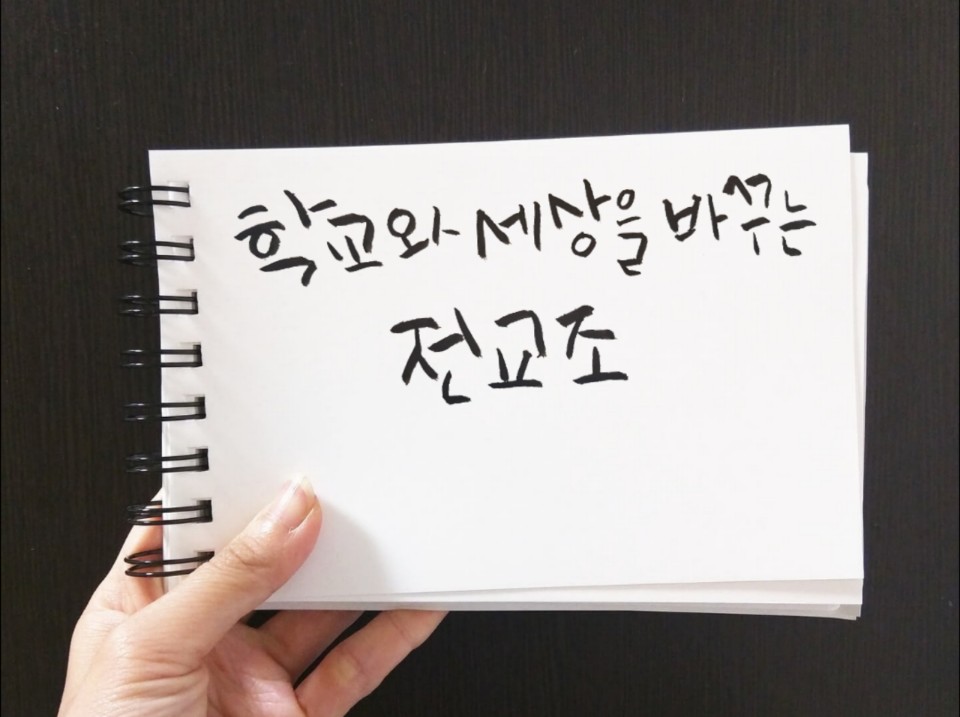 학교와 세상을 바꾸는
전교조